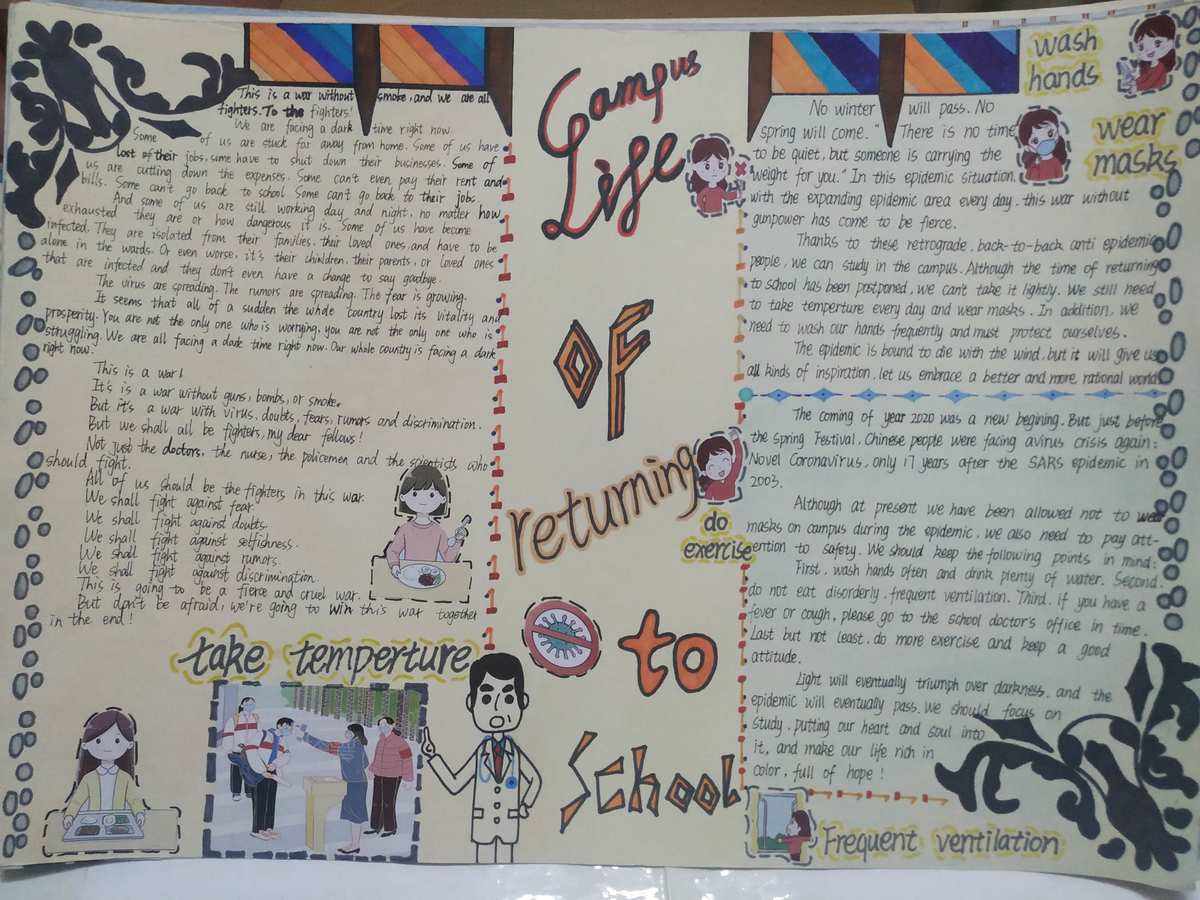 This is a war without smoke, and we are all
fighters. To the fighters!
We are facing a dark time right now.
Some of us are stuck far away from home. Some of us have
lost of their jobs, some have to shut down their businesses. Some of
us are cutting down the expenses. Some can't even pay their rent and
bills. Some can't go back to school. Some can't go back to their job.
And some of us are still working day and night, no matter how
exhausted they are or how dangerous it is. Some of us have become
infected. They are isolated from their families, their loved ones, and have to be
alone in the wards. Or even worse, it's their children, their parents, or loved ones
that are infected and they don't even have a change to say goodbye.
The virus are spreading. The rumors are spreading. The fear is growing.
It seems that all of a sudden the whole country lost its vitality and
prosperity. You are not the only one who is worrying, you are not the only one who is
struggling. We are all facing a dark time right now. Our whole country is facing a dark
right now.
This is a war!
It's is a war without guns, bombs, or smoke.
But it's a war with virus, doubts, fears, rumors and discrimination.
But we shall all be fighters, my dear fellows!
Not just the doctors, the nurse, the policemen and the scientists who
should fight.
All of us should be the fighters in this war.
We shall fight against fear.
We shall fight against doubts.
We shall fight against selfishness.
We shall fight against rumors.
We shall fight against discrimination.
This is going to be a fierce and cruel war.
But don't be afraid, we're going to win this war together
in the end!
take temperture
Campus
Life
OF
returning
to
School
do
exercise
wash
hands
wear
masks
No winter will pass. No
spring will come. " There is no time
to be quiet, but someone is carrying the
weight for you." In this epidemic situation,
with the expanding epidemic area every day, this war without
gunpower has come to be fierce.
Thanks to these retrograde, back-to-back anti epidemic
people, we can study in the campus. Although the time of returning
to school has been postponed, we can't take it lightly. We still need
to take temperture every day and wear masks. In addition, we
need to wash our hands frequently and must protect ourselves.
The epidemic is bound to die with the wind, but it will give us
all kinds of inspiration, let us embrace a better and more rational world.
The coming of year 2020 was a new begining. But just before
the Spring Festival, Chinese people were facing avirus crisis again:
Novel Coronavirus, only 17 years after the SARS epidemic in
2003.
Although at present we have been allowed not to wear
masks on campus during the epidemic, we also need to pay att-
ention to safety. We should keep the following points in mind:
First, wash hands often and drink plenty of water. Second,
do not eat disorderly, frequent ventilation. Third, if you have a
fever or cough, please go to the school doctor's office in time.
Last but not least, do more exercise and keep a good
attitude.
Light will eventually triumph over darkness, and the
epidemic will eventually pass. We should focus on
study, putting our heart and soul into
it, and make our life rich in
color, full of hope!
Frequent ventilation